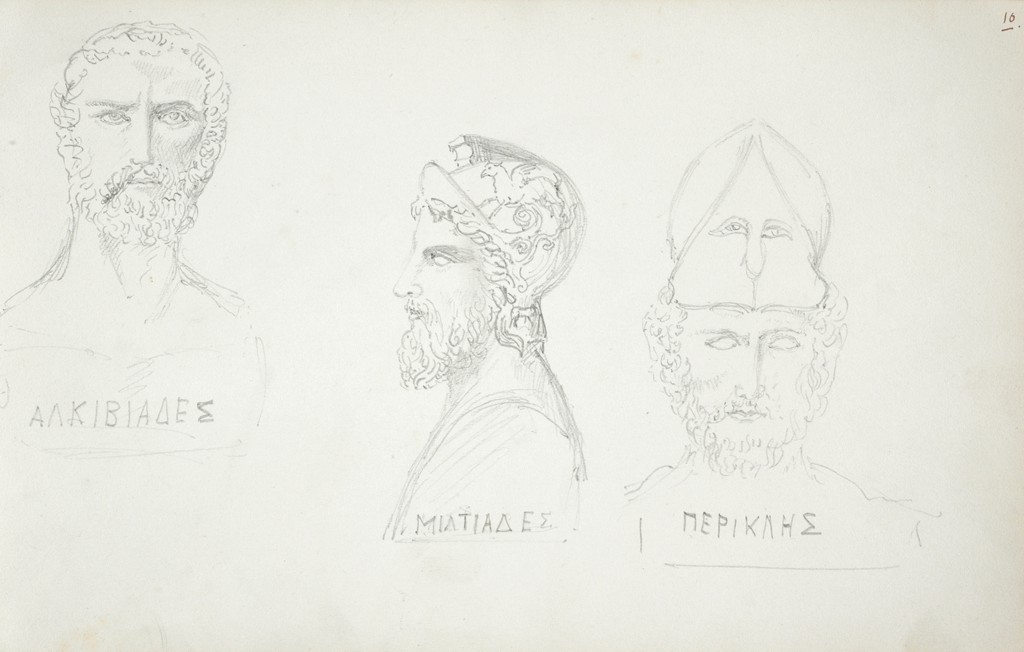 10
ΑΛΚΙΒΙΑΔΕΣ
ΜΙΛΤΙΑΔΕΣ
ΠΕΡΙΚΛΗΣ